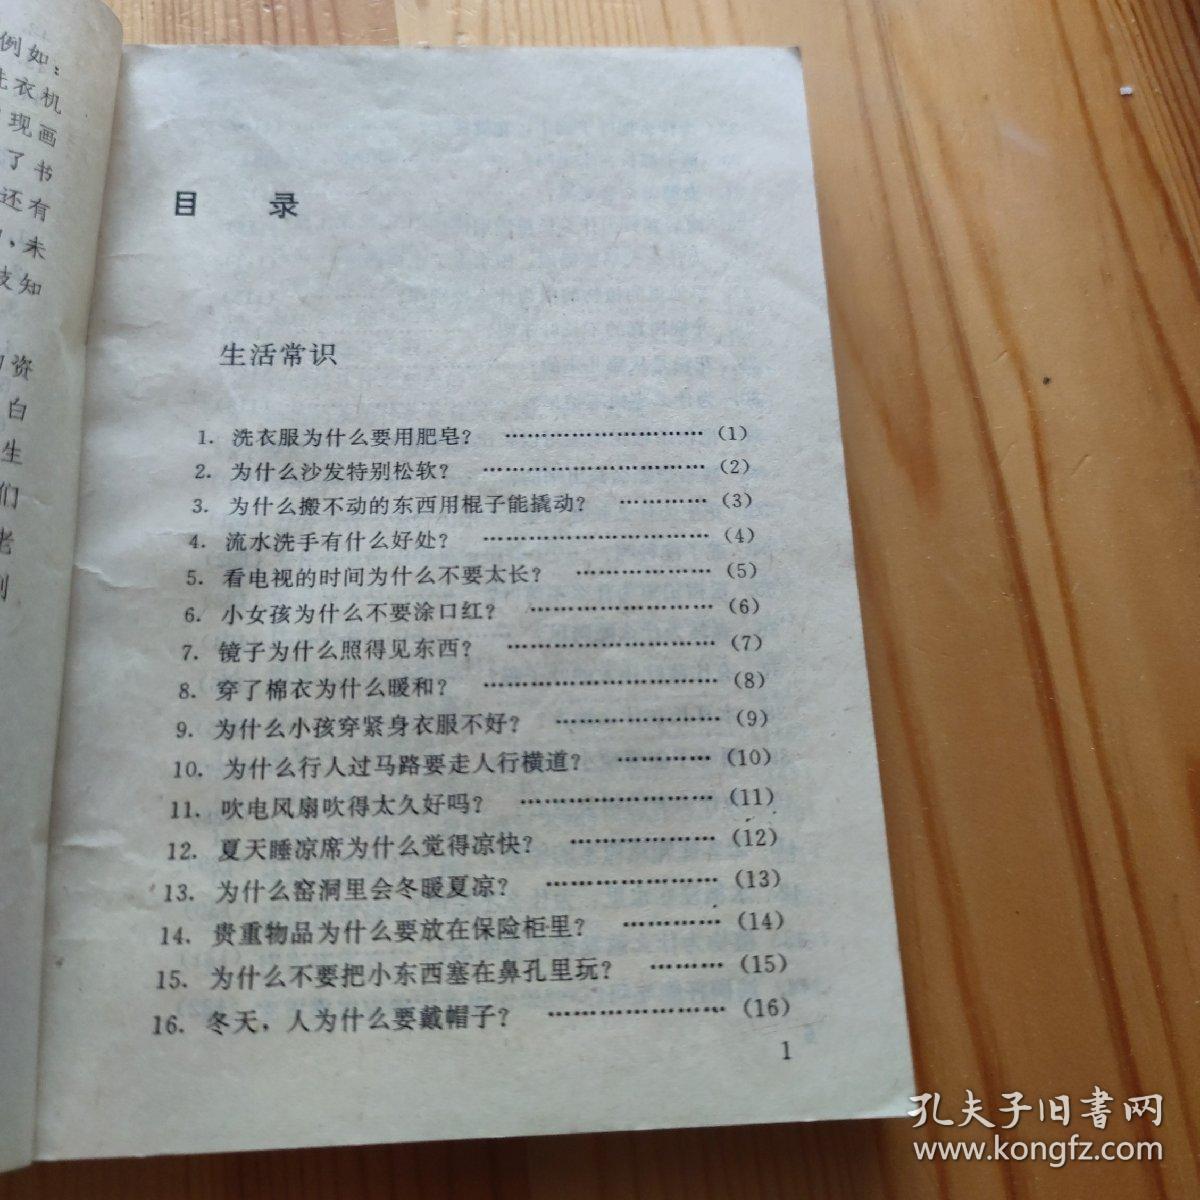 例如：
衣机
现画
了书
还有
未
知
资
白
生
们
目 录
生活常识
1. 洗衣服为什么要用肥皂？ ………………………（1）
2. 为什么沙发特别松软？ …………………………（2）
3. 为什么搬不动的东西用棍子能撬动？ …………（3）
4. 流水洗手有什么好处？ …………………………（4）
5. 看电视的时间为什么不要太长？ ………………（5）
6. 小女孩为什么不要涂口红？ ……………………（6）
7. 镜子为什么照得见东西？ ………………………（7）
8. 穿了棉衣为什么暖和？ …………………………（8）
9. 为什么小孩穿紧身衣服不好？ …………………（9）
10. 为什么行人过马路要走人行横道？ …………（10）
11. 吹电风扇吹得太久好吗？ ……………………（11）
12. 夏天睡凉席为什么觉得凉快？ ………………（12）
13. 为什么窑洞里会冬暖夏凉？ …………………（13）
14. 贵重物品为什么要放在保险柜里？ …………（14）
15. 为什么不要把小东西塞在鼻孔里玩？ ………（15）
16. 冬天，人为什么要戴帽子？ …………………（16）
1
孔夫子旧书网
www.kongfz.com